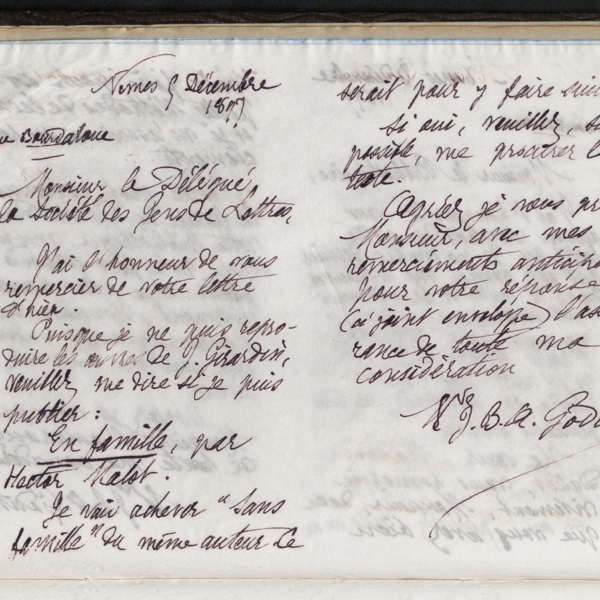 Nimes 5 Décembre
1897
ue Bourdaloue
Monsieur le Délégué,
la Société des Gens de Lettres,
J'ai l'honneur de vous
remercier de votre lettre
d'hier.
Puisque je ne puis repro-
duire les œuvres de J. Girardin,
veuillez me dire si je puis
publier :
En famille, par
Hector Malot.
Je vais achever "Sans
famille" du même auteur. Ce
serait pour y faire sui
Si oui, veuillez, s
possible, me procurer l
texte.
Agréez je vous pr
Monsieur, avec mes
remerciements anticip
pour votre réponse
(ci joint enveloppe) l'ass
rance de toute ma
considération
J. B. A. God